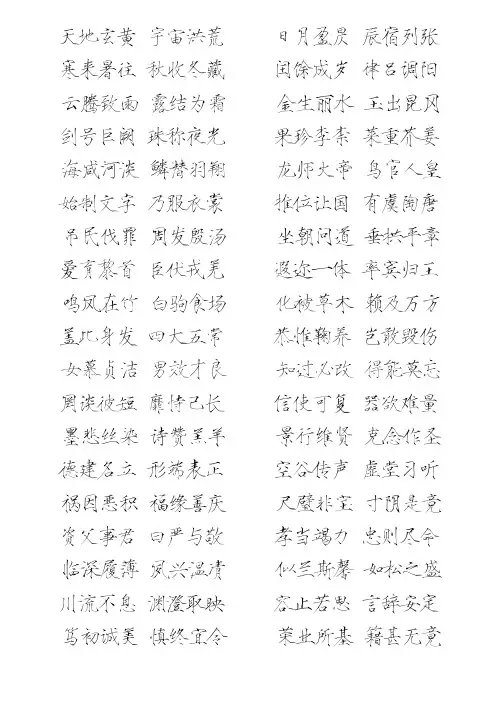 天地玄黄 宇宙洪荒 日月盈昃 辰宿列张
寒来暑往 秋收冬藏 闰馀成岁 律吕调阳
云腾致雨 露结为霜 金生丽水 玉出昆冈
剑号巨阙 珠称夜光 果珍李柰 菜重芥姜
海咸河淡 鳞潜羽翔 龙师火帝 鸟官人皇
始制文字 乃服衣裳 推位让国 有虞陶唐
吊民伐罪 周发殷汤 坐朝问道 垂拱平章
爱育黎首 臣伏戎羌 遐迩一体 率宾归王
鸣凤在竹 白驹食场 化被草木 赖及万方
盖此身发 四大五常 恭惟鞠养 岂敢毁伤
女慕贞洁 男效才良 知过必改 得能莫忘
罔谈彼短 靡恃己长 信使可复 器欲难量
墨悲丝染 诗赞羔羊 景行维贤 克念作圣
德建名立 形端表正 空谷传声 虚堂习听
祸因恶积 福缘善庆 尺璧非宝 寸阴是竞
资父事君 曰严与敬 孝当竭力 忠则尽命
临深履薄 夙兴温凊 似兰斯馨 如松之盛
川流不息 渊澄取映 容止若思 言辞安定
笃初诚美 慎终宜令 荣业所基 籍甚无竟